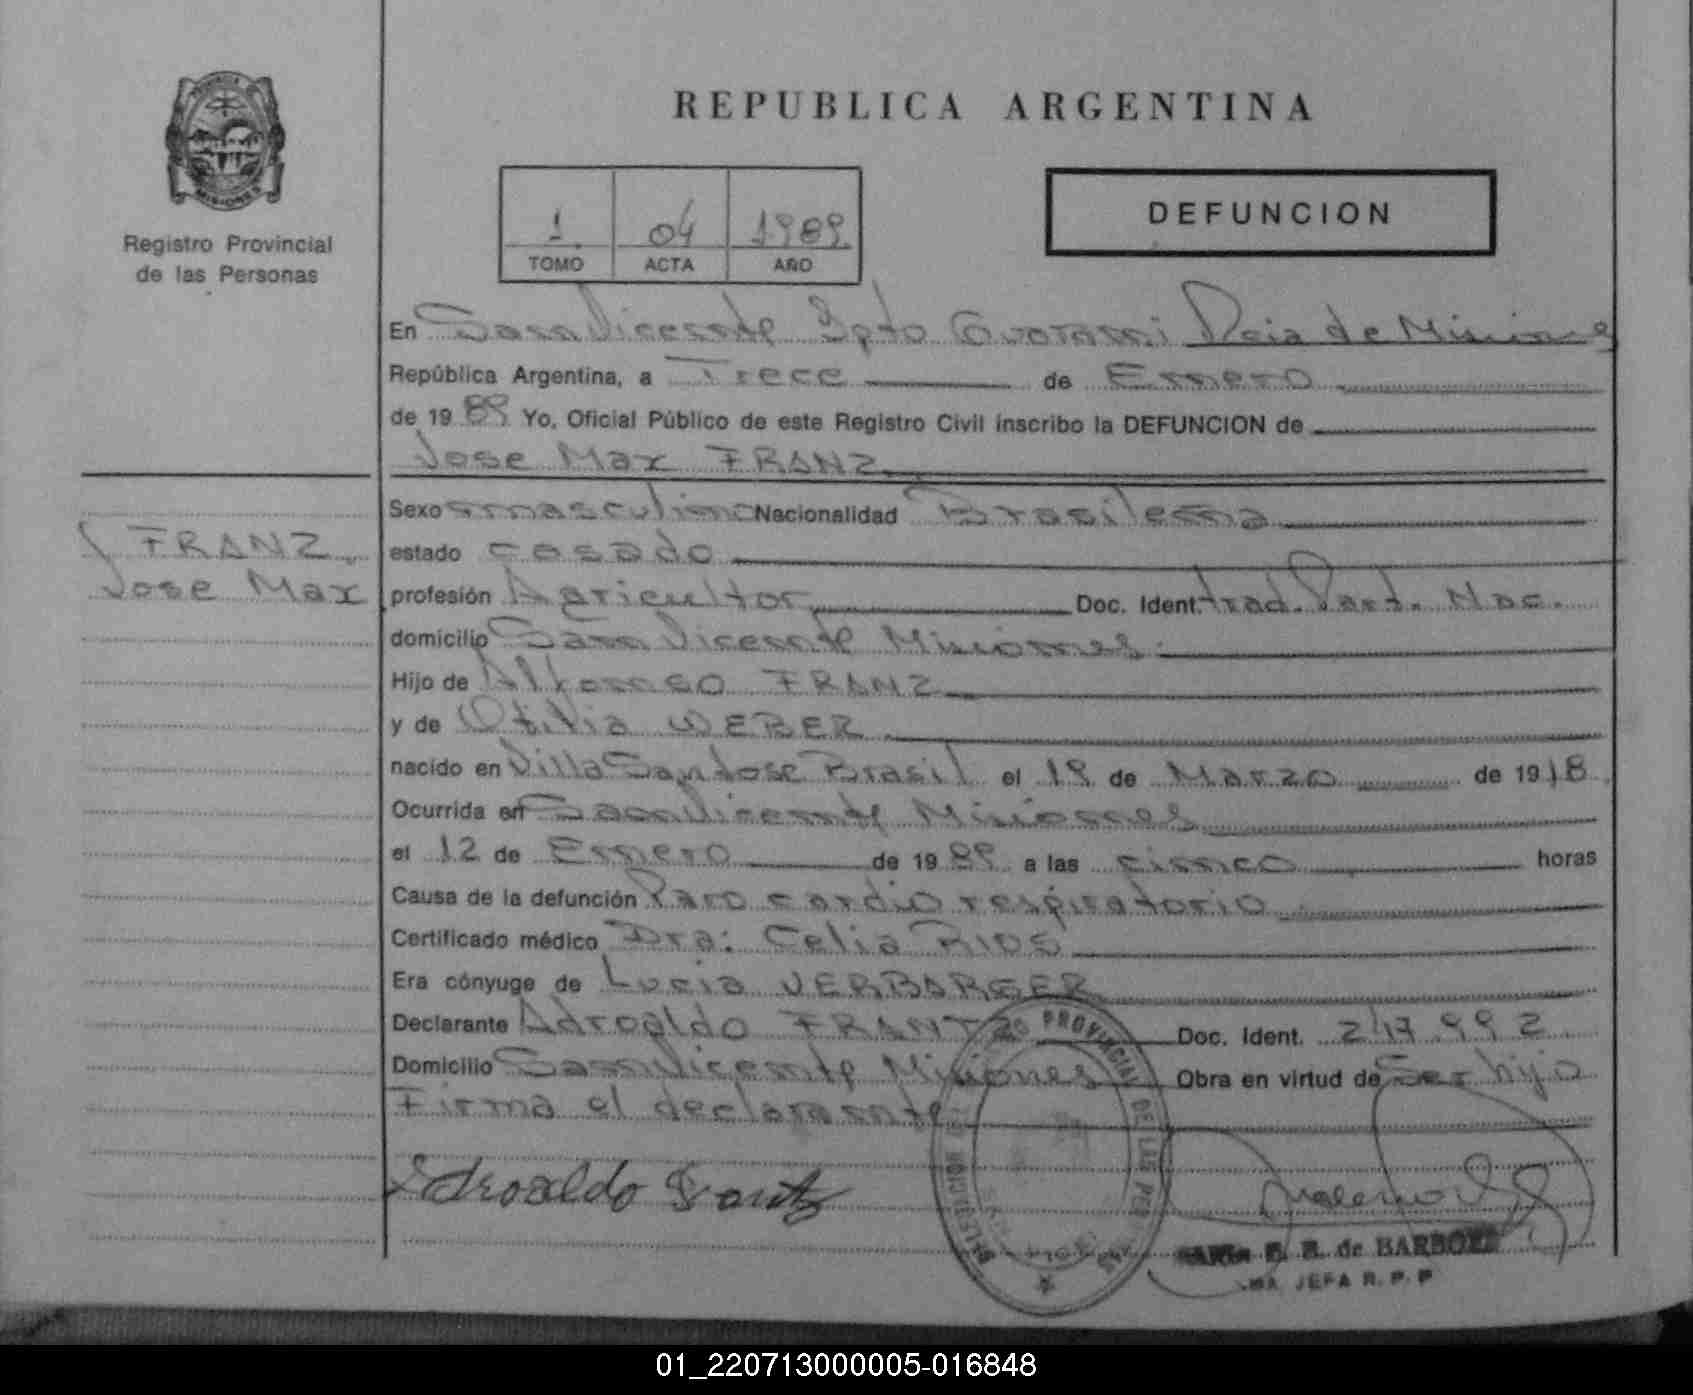 REPUBLICA ARGENTINA
PROVINCIA DE
MISIONES
Registro Provincial
de las Personas
1 04 1989
TOMO ACTA AÑO
DEFUNCION
En San Vicente Dpto Guarani Pcia de Misiones
República Argentina, a Trece de Enero
de 1989 Yo, Oficial Público de este Registro Civil inscribo la DEFUNCION de
Jose Max FRANZ
FRANZ
Jose Max
Sexo masculino Nacionalidad Brasilena
estado casado
profesión Agricultor Doc. Ident. trad. Part. Nac.
domicilio San Vicente Misiones
Hijo de Alfonso FRANZ
y de Otilia WEBER
nacido en Villa San Jose Brasil el 19 de Marzo de 1918
Ocurrida en San Vicente Misiones
el 12 de Enero de 1989 a las cinco horas
Causa de la defunción Paro cardio respiratorio
Certificado médico Dra: Celia RIOS
Era cónyuge de Lucia VERBARGER
Declarante Adroaldo FRANTZ Doc. Ident. 217.992
Domicilio San Vicente Misiones Obra en virtud de Ser hijo
Firma el declarante
Adroaldo Frantz
PROVINCIAL DE LAS PERSONAS
DELEGACION
E. R. de BARBOZA
JEFA R. P. P
01_220713000005-016848